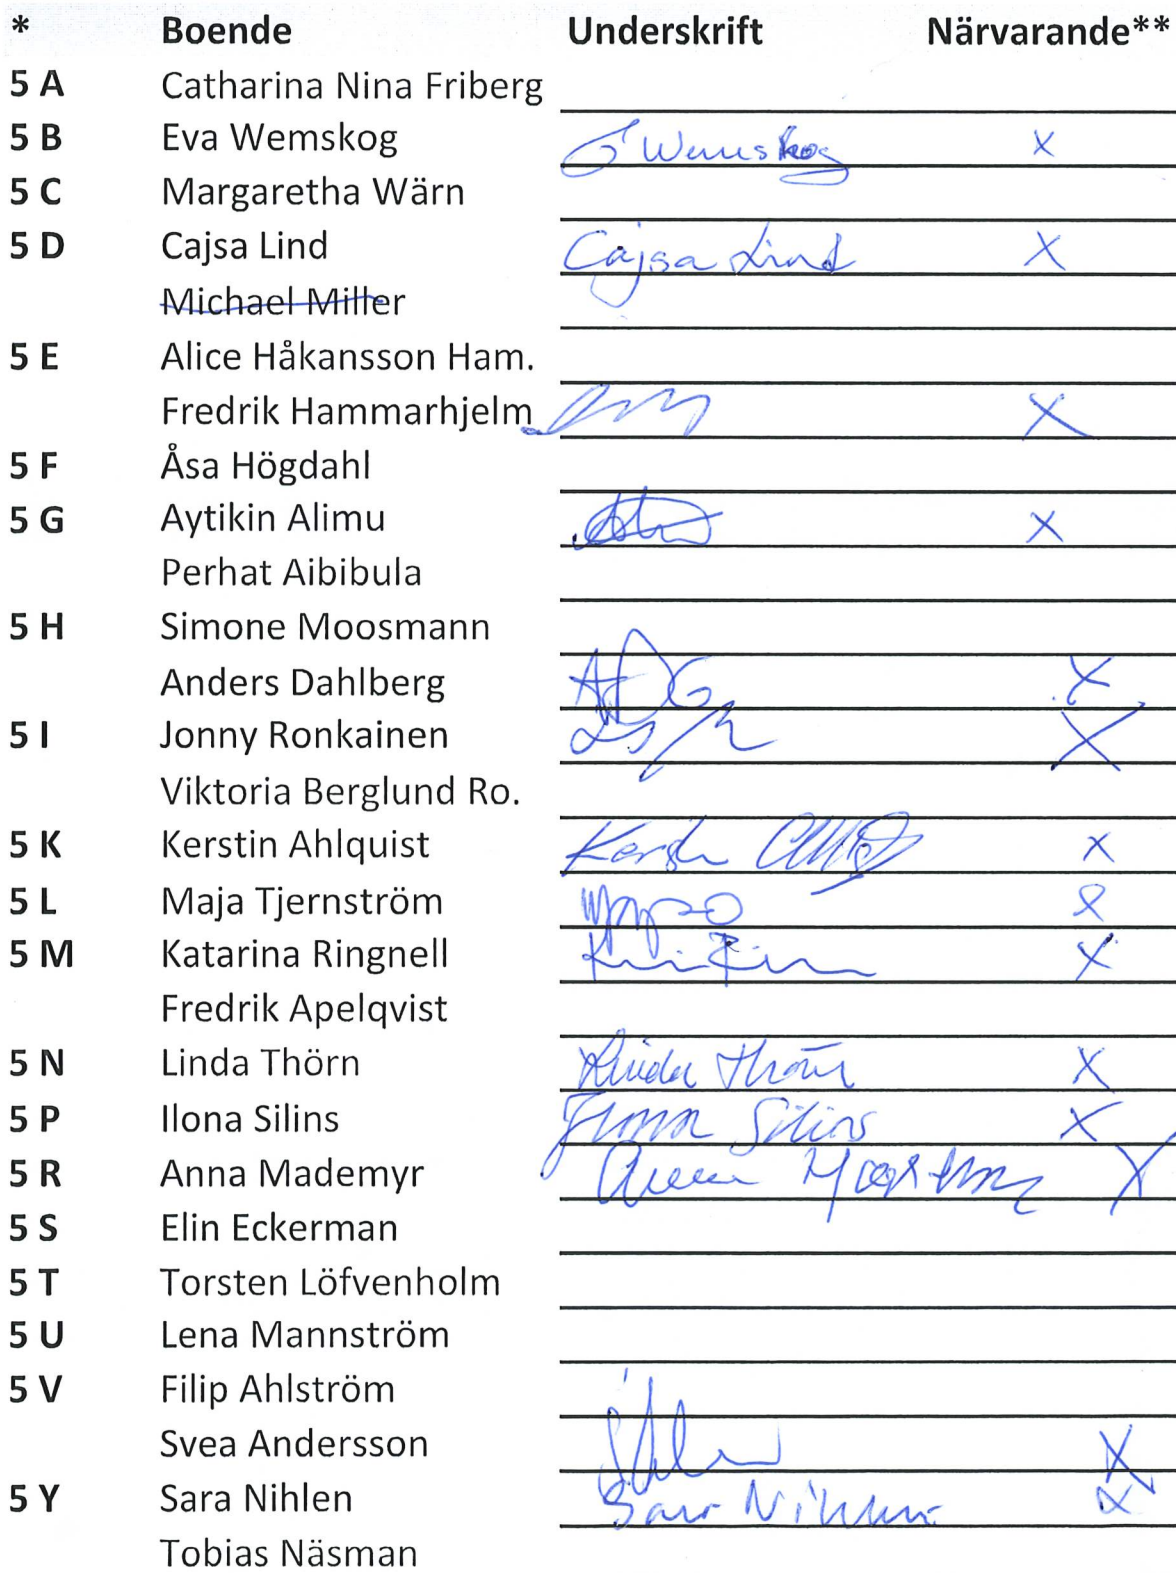 * Boende Underskrift Närvarande**
5 A Catharina Nina Friberg
5 B Eva Wemskog E Wemskog X
5 C Margaretha Wärn
5 D Cajsa Lind Cajsa Lind X
Michael Miller
5 E Alice Håkansson Ham.
Fredrik Hammarhjelm X
5 F Åsa Högdahl
5 G Aytikin Alimu X
Perhat Aibibula
5 H Simone Moosmann
Anders Dahlberg X
5 I Jonny Ronkainen X
Viktoria Berglund Ro.
5 K Kerstin Ahlquist Kerstin X
5 L Maja Tjernström X
5 M Katarina Ringnell X
Fredrik Apelqvist
5 N Linda Thörn Linda Thörn X
5 P Ilona Silins Ilona Silins X
5 R Anna Mademyr Anna X
5 S Elin Eckerman
5 T Torsten Löfvenholm
5 U Lena Mannström
5 V Filip Ahlström
Svea Andersson X
5 Y Sara Nihlen Sara Nihlen X
Tobias Näsman